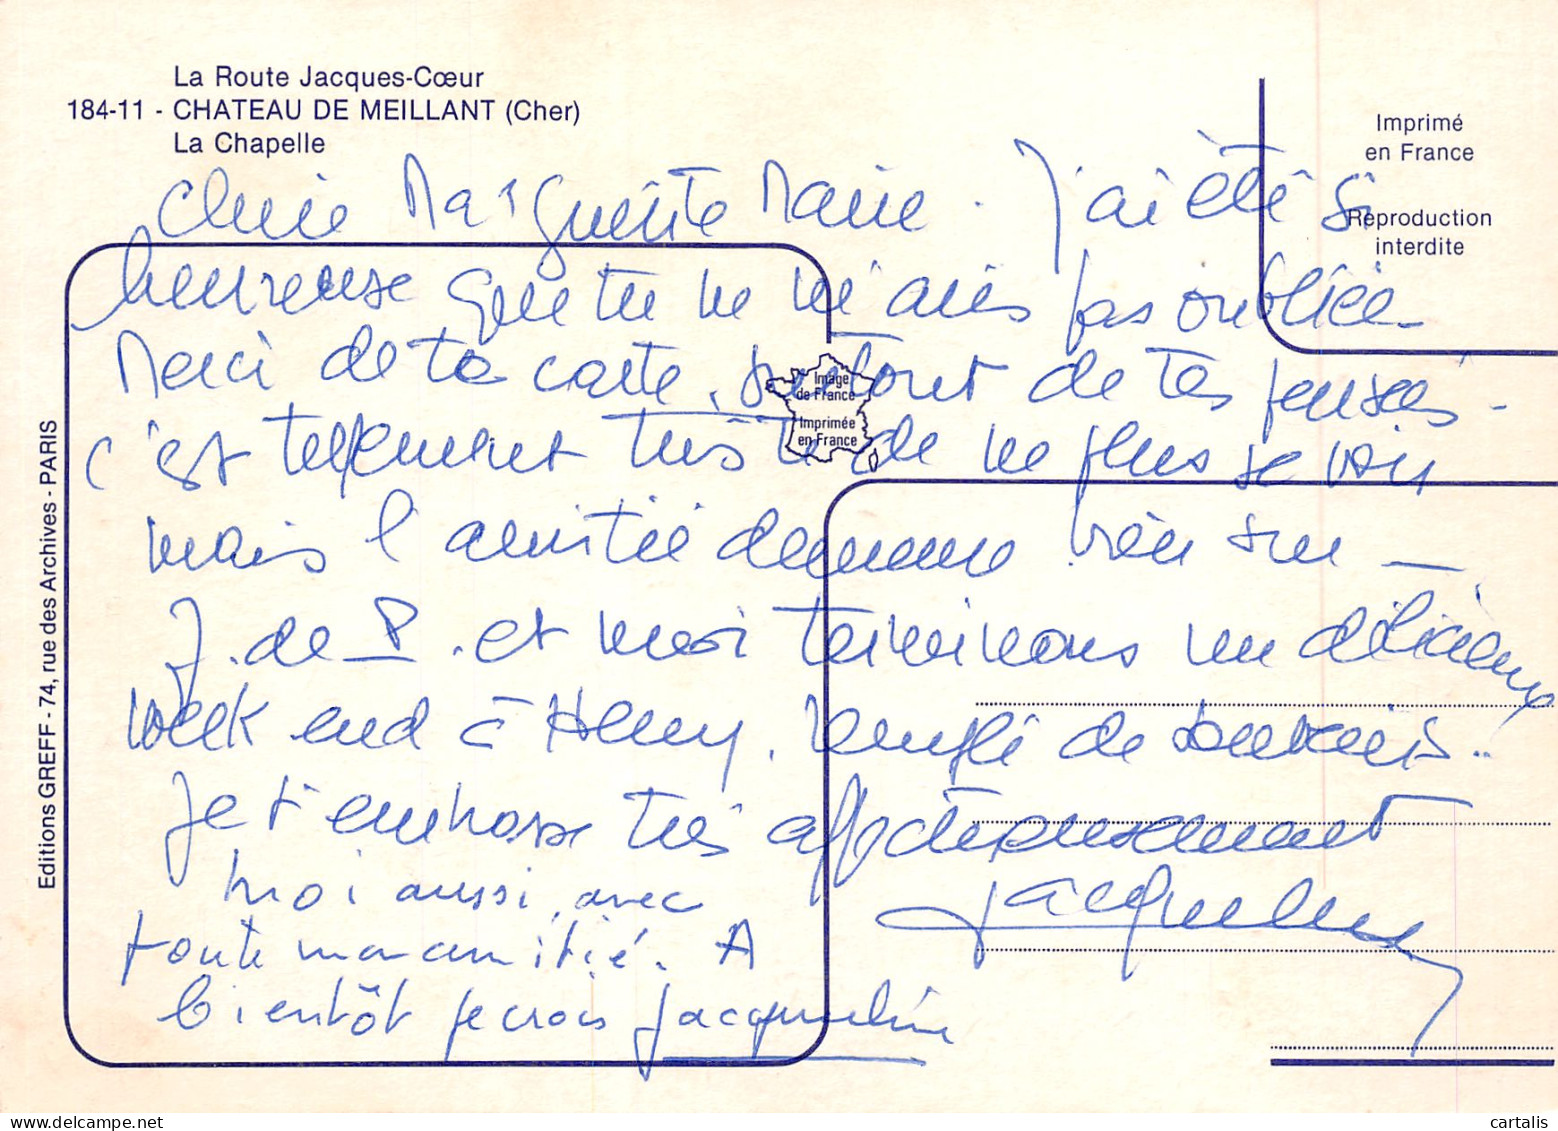 La Route Jacques-Cœur
184-11 - CHATEAU DE MEILLANT (Cher)
La Chapelle
Imprimé
en France
Reproduction
interdite
Image
de France
Imprimée
en France
Editions GREFF - 74, rue des Archives - PARIS
Chérie Marguerite Marie. J'ai été si
heureuse que tu ne m'aies pas oubliée.
Merci de ta carte, surtout de tes pensées.
C'est tellement triste de ne plus se voir
mais l'amitié demeure bien sur —
J. de P. et moi terminons un délicieux
week end à de souvenirs..
Je t'embrasse très affectueusement
Jacqueline
moi aussi, avec
toute mon amitié. A
bientôt je crois Jacqueline